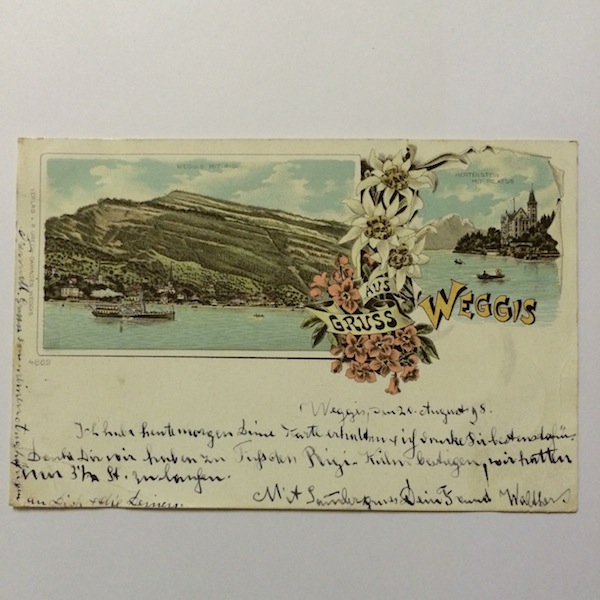 WEGGIS MIT RIGI
HERTENSTEIN
AUS
GRUSS
WEGGIS
4869
Weggis, den 20. August 98.
Ich habe heute morgen Deine Karte erhalten, ich danke Dir bestens dafür
Denke Dir wir haben zu Fuss den Rigi-Kulm bestiegen, wir hatten
nur 3½ St. zu laufen.
Mit Dein Freund Walther
an Dich & die Deinen.